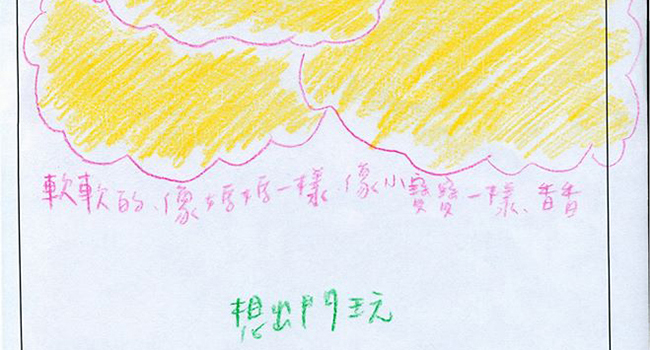 軟軟的、像媽媽一樣、像小寶寶一樣、香香
想出門玩